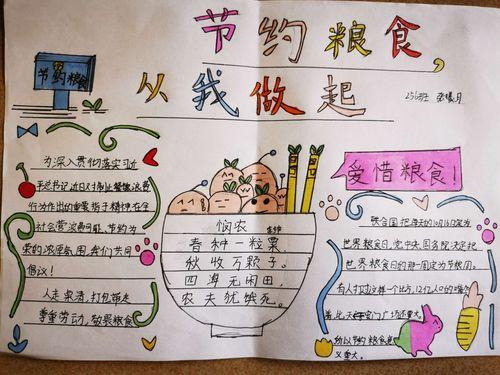 节约粮食,
从我做起
256班
节约粮食
为深入贯彻落实习近
平总书记近日对制止餐饮浪费
行为作出的重要指示精神在全
社会营浪费可耻,节约为
荣的浓厚氛围,我们共同
倡议!
人走桌清,打包带走
尊重劳动,敬畏粮食
悯农
春种一粒粟
秋收万颗子。
四海无闲田,
农夫犹饿死。
爱惜粮食!
联合国把每年的10月16日定为
世界粮食日,党中央国务院决定把
世界粮食日的那一周定为节粮周。
有人打过这样一个比方,12亿人口的
比天安门广场还要大。
所以节约粮食意
义重大。